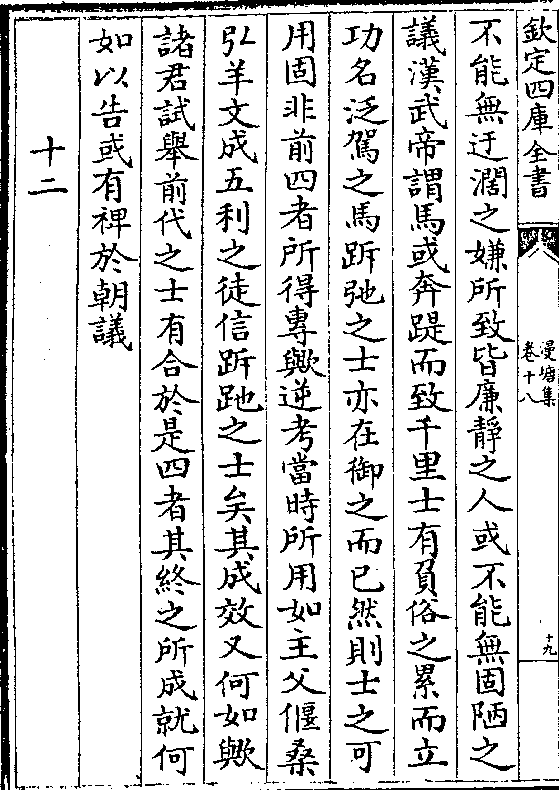 欽定四庫全書
漫塘集
卷十八
十九
不能無迂濶之嫌所致皆廉靜之人或不能無固陋之
議漢武帝謂馬或奔踶而致千里士有負俗之累而立
功名泛駕之馬跅弛之士亦在御之而已然則士之可
用固非前四者所得專歟逆考當時所用如主父偃桑
弘羊文成五利之徒信跅跎之士矣其成效又何如歟
諸君試舉前代之士有合於是四者其終之所成就何
如以告或有裨於朝議
十二